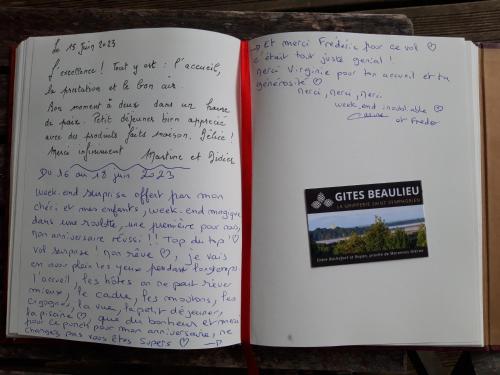 Le 15 Juin 2023
l'excellence! Tout y est : l'accueil,
la prestation et le bon air.
Bon moment à deux dans un havre
de paix. Petit déjeuner bien apprécié
avec des produits faits maison. Délice!
Merci infiniment. Martine et Didier
Du 16 au 18 juin 2023
Week-end surprise offert par mon
chéri et mes enfants, week-end magique
dans une roulotte, une première pour moi,
mon anniversaire réussi !! Top du top ♡
vol surprise! mon rêve ♡, je vais
en avoir plein les yeux pendant longtemps
l'accueil, les hôtes on ne peut rêver
mieux, le cadre, les moutons, les
cigognes, la vue, le petit déjeuner,
la piscine ♡, que du bonheur et merci
pour ce punch pour mon anniversaire, ne
changez pas vous êtes supers ♡ →
→ Et merci Frédéric pour ce vol ♡
c'était tout juste genial!
merci Virginie pour ton accueil et ta
générosité ♡
merci, merci, merci.
week-end inoubliable ♡
et Fredo
GITES BEAULIEU
LA GRIPPERIE SAINT SYMPHORIEN
Entre Rochefort et Royan, proche de Marennes Oléron